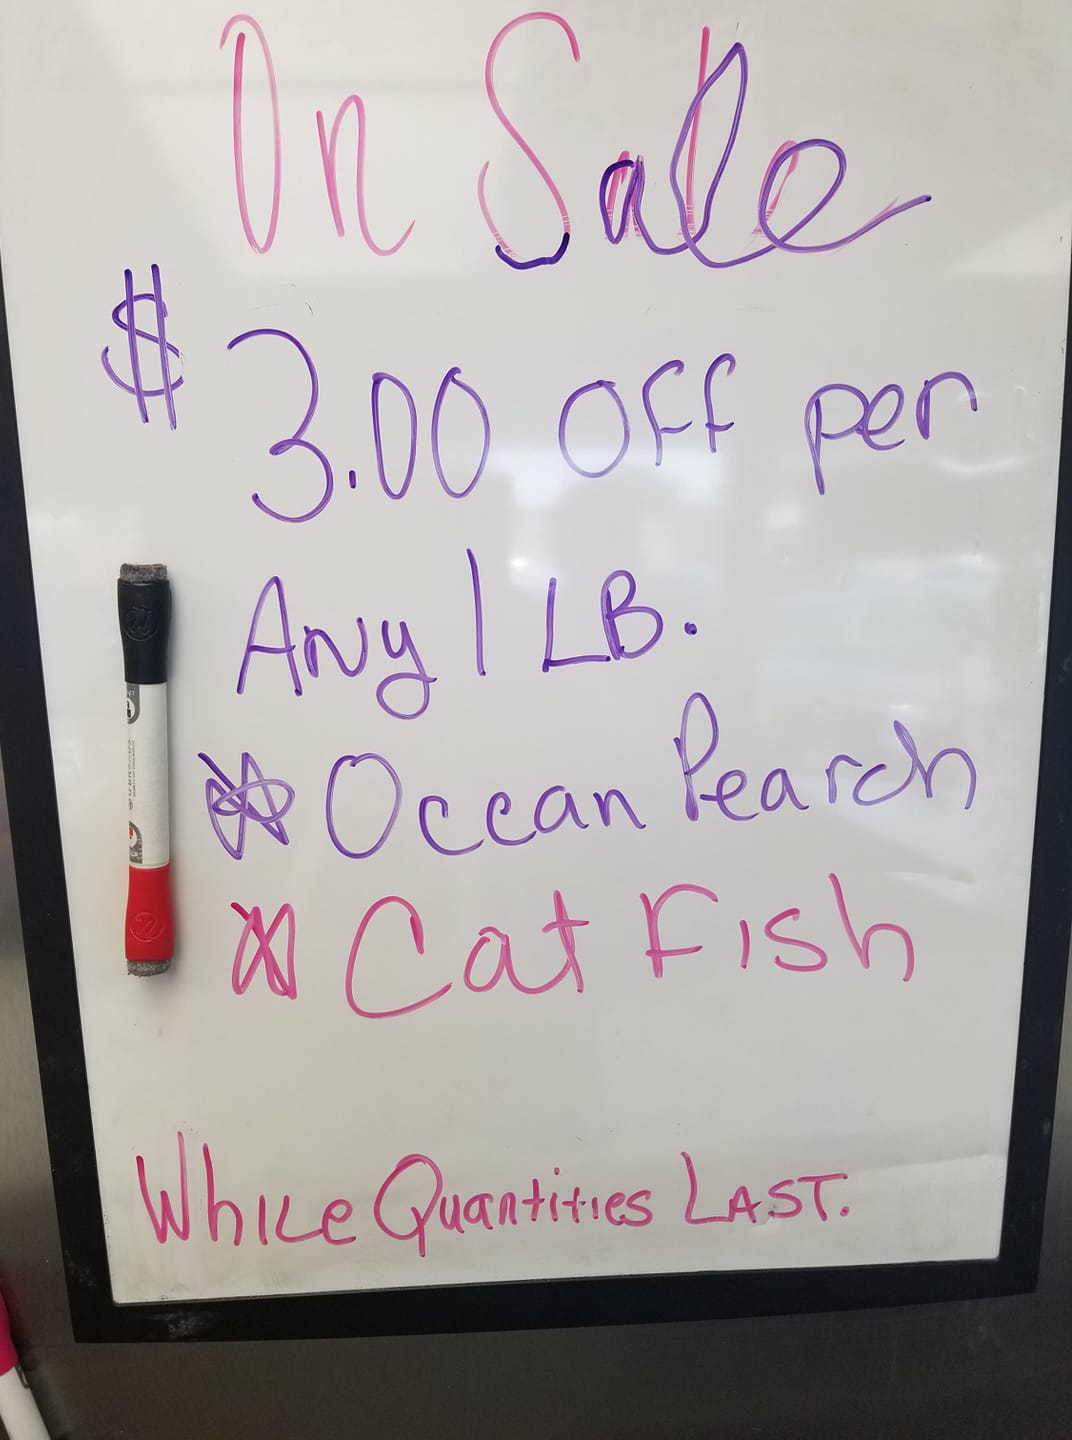 On Sale
$3.00 OFF per
Any 1 LB.
Ocean Pearch
Cat Fish
While Quantities LAST.